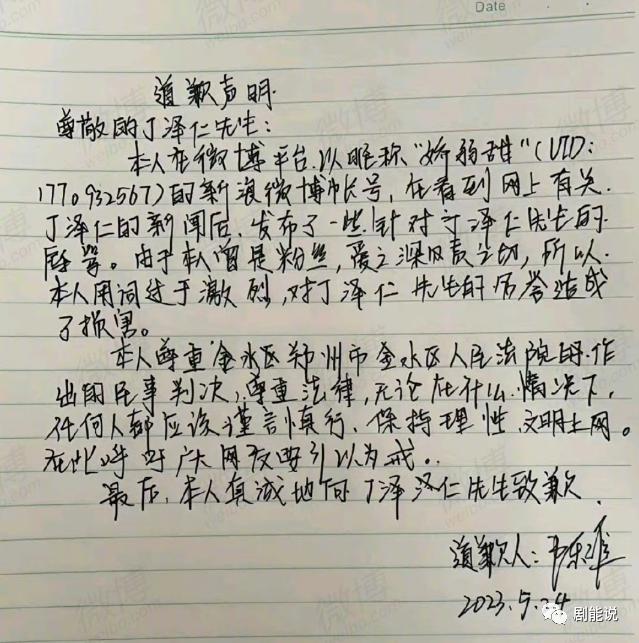 Date
道歉声明
尊敬的丁泽仁先生:
本人在微博平台以昵称“娇弱甜”(UID:
1770932567)的新浪微博帐号,在看到网上有关
丁泽仁的新闻后,发布了一些针对丁泽仁先生的
辱骂。由于本人曾是粉丝,爱之深风责之切,所以
本人用词过于激烈,对丁泽仁先生的名誉造成
了损害。
本人尊重金水区郑州市金水区人民法院的作
出的民事判决,尊重法律,无论在什么情况下,
任何人都应该谨言慎行、保持理性、文明上网。
在此呼吁广大网友要引以为戒。
最后,本人真诚地向丁泽泽仁先生致歉.
道歉人:
2023.5.24
剧能说
微博
weibo.com